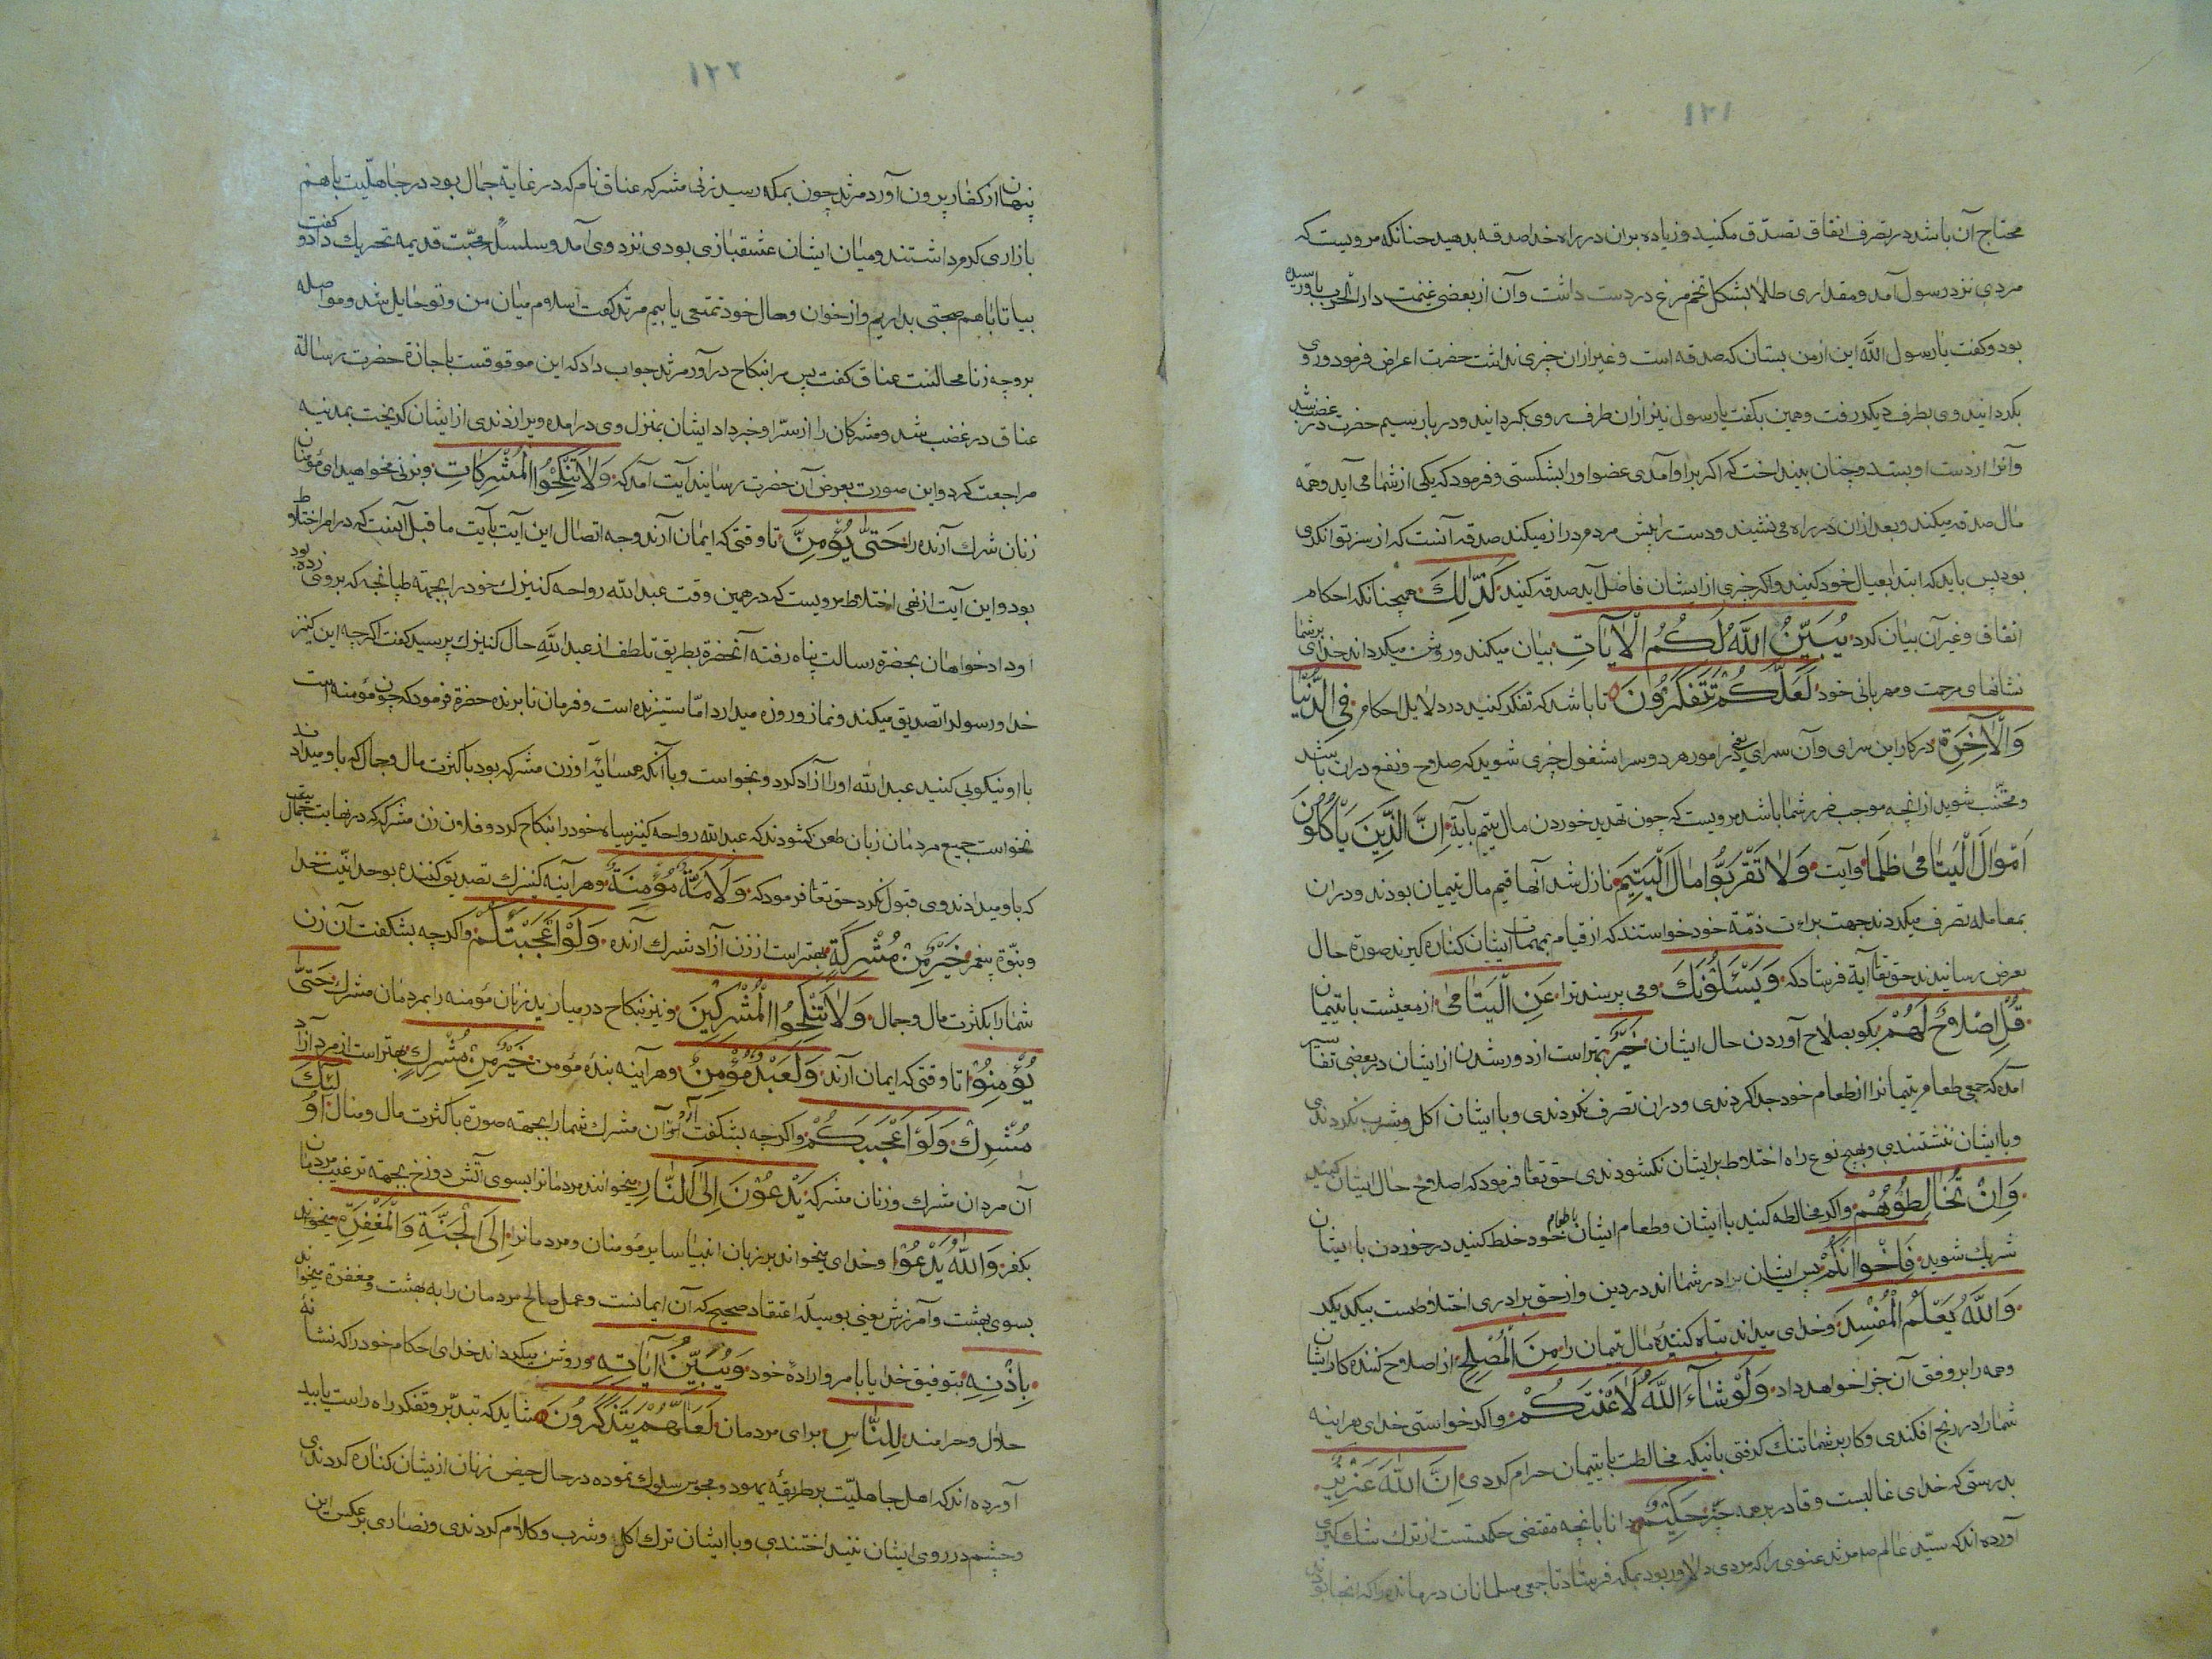 ١٢١
محتاج آن باشد در تصرف انفاق تصدّق مکنید و زیاده بران در راه خدا صدقه بدهید چنانکه مرویست که
مردی نزد رسول آمد و مقداری طلا بشکل تخم مرغ در دست داشت و آن از بعضی غنیمت دار الحرب باو رسیده
بود و کفت یا رسول اللّه این از من بستان که صدقه است و غیر ازان چیزی نداشت حضرت اعراض فرمود و روی
بکردانید وی بطرف دیکر رفت و همین بکفت یا رسول نیز ازان طرف روی بکردانید و در بار سیم حضرت در غضب شد
و آنرا از دست او بستد و چنان بینداخت که اکر براو آمدی عضو اورا بشکستی و فرمود که یکی از شما می آید و همه
مال صدقه میکند و بعد ازان در راه می نشیند و دست را پیش مردم دراز میکند صدقه آنست که از سر توانکری
بود پس باید که ابتدا بعیال خود کنید و اکر چیزی از ایشان فاضل آید صدقه کنید كَذٰلِكَ همچنانکه احکام
انفاق و غیر آن بیان کرد يُبَيِّنُ اللّٰهُ لَكُمُ الْاٰيَاتِ بیان میکند و روشن میکرداند خدای برشما
نشانهای مرحمت و مهربانی خود لَعَلَّكُمْ تَتَفَكَّرُونَ تا باشد که تفکر کنید در دلایل احکام فِى الدُّنْيَا
وَالْاٰخِرَةِ در کار این سرای و آن سرای یعنی در امور هر دو سرا مشغول چیزی شوید که صلاح و نفع دران باشد
و مجتنب شوید از انچه موجب ضرر شما باشد مرویست که چون تهدید خوردن مال یتیم بآیهٔ اِنَّ الَّذِينَ يَاْكُلُونَ
اَمْوَالَ الْيَتَامٰى ظُلْمًا و آیت وَلَا تَقْرَبُوا مَالَ الْيَتِيمِ نازل شد آنها قیم مال یتیمان بودند و دران
بمعامله تصرف میکردند جهت براءت ذمّه خود خواستند که از قیام بمهمات ایشان کناره کیرند صورة حال
بعرض رسانیدند حق تعا آیة فرستاد که وَيَسْئَلُونَكَ و می پرسند ترا عَنِ الْيَتَامٰى از معیشت با یتیمان
قُلْ اِصْلَاحٌ لَهُمْ بکو بصلاح آوردن حال ایشان خَيْرٌ بهتر است از دور شدن از ایشان در بعضی تفاسیر
آمده که جمعی طعام یتیمانرا از طعام خود جدا کردندی و دران تصرف نکردندی و با ایشان اکل و شرب نکردندی
و با ایشان ننشستندی و بهیچ نوع راه اختلاط بر ایشان نکشودندی حق تعا فرمود که اصلاح حال ایشان کنید
وَاِنْ تُخَالِطُوهُمْ و اکر مخالطه کنید با ایشان و طعام ایشان با طعام خود خلط کنید در خوردن با ایشان
شریك شوید فَاِخْوَانُكُمْ پس ایشان برادر شما اند در دین و از حق برادری اختلاطست بیکدیکر
وَاللّٰهُ يَعْلَمُ الْمُفْسِدَ و خدای میداند تباه کنندهٔ مال یتیمان را مِنَ الْمُصْلِحِ از اصلاح کننده کار ایشان
و همه را بر وفق آن جزا خواهد داد وَلَوْ شَاءَ اللّٰهُ لَاَعْنَتَكُمْ و اکر خواستی خدای هراینه
شمارا در رنج افکندی و کار بر شما تنك کرفتی بانیکه مخالطت با یتیمان حرام کردی اِنَّ اللّٰهَ عَزِيزٌ
بدرستی که خدای غالبست و قادر بر همه چیز حَكِيمٌ دانا بانچه مقتضی حکمتست از ترك
آورده اند که سیّد عالم صم مرثد غنوی را که مردی دلاور بود بمکه فرستاد تا جمعی مسلمانان درمانده را که انجا بودند
١٢٢
پنهان از کفار برون آورد مرثد چون بمکه رسید زنی مشرکه عناق نام که در غایة جمال بود در جاهلیّت باهم
بازاری کرم داشتند و میان ایشان عشقبازی بودی نزد وی آمد و سلسلهٔ محبّت قدیمه تحریك داد و کفت
بیا تا باهم صحبتی بداریم و از خوان وصال خود تمتعی یابیم مرثد کفت اسلام میان من و تو حایل شد و مواصله
بر وجه زنا محالست عناق کفت پس مرا بنکاح در آور مرثد جواب داد که این موقوفست باجازة حضرت رسالة
عناق در غضب شد و مشرکان را از سرّ او خبر داد ایشان بمنزل وی در امده ویرا زدندی از ایشان کریخت بمدینه
مراجعت کرد و این صورت بعرض آن حضرت رسانید آیت آمد که وَلَا تَنْكِحُوا الْمُشْرِكَاتِ و بزنی مخواهید ای مؤمنان
زنان شرك آرنده را حَتّٰى يُؤْمِنَّ تا وقتی که ایمان آرند وجه اتصال این آیت بآیت ما قبل آنست که در امر اختلاط
بود و این آیت از نهی اختلاط مرویست که در همین وقت عبد اللّه رواحه کنیزك خود را بجهته طپانچه که بروی زده بود
او داد خواهان بحضرة رسالت پناه رفته آنحضرة بطریق تلطف از عبد اللّه حال کنیزك پرسید کفت اکرچه این کنیز
خدا و رسولرا تصدیق میکند و نماز و روزه میدارد امّا ستیزنده است و فرمان نابرنده حضرة فرمود که چون مؤمنه است
با او نیکویی کنید عبد اللّه اورا آزاد کرد و بخواست و با آنکه همسایهٔ او زن مشرکه بود با کثرت مال و جمال که باو میدادند
نخواست جمیع مردمان زبان طعن کشودند که عبد اللّه رواحه کنیز سیاه خود را بنکاح کرد و فلان زن مشرکه که در نهایت جمال
که باو میدادند وی قبول نکرد حق تعا فرمود که وَلَاَمَةٌ مُؤْمِنَةٌ و هر آینه کنیزك تصدیق کننده بوحدانیّت خدا
و بنوّة پیغمبر خَيْرٌ مِنْ مُشْرِكَةٍ بهتر است از زن آزاد شرك آرنده وَلَوْ اَعْجَبَتْكُمْ و اکرچه بشکفت آن زن
شمارا بکثرت مال و جمال وَلَا تُنْكِحُوا الْمُشْرِكِينَ و نیز بنکاح در میارید زنان مؤمنه را بمردمان مشرك حَتّٰى
يُؤْمِنُوا تا وقتی که ایمان آرند وَلَعَبْدٌ مُؤْمِنٌ و هر آینه بندهٔ مؤمن خَيْرٌ مِنْ مُشْرِكٍ بهتر است از مرد آزاد
مُشْرِك وَلَوْ اَعْجَبَكُمْ و اکرچه بشکفت آرد آن مشرك شمارا بجهته صورة با کثرت مال و منال اُولٰئِكَ
آن مردان مشرك و زنان مشرکه يَدْعُونَ اِلَى النَّارِ میخوانند مردمانرا بسوی آتش دوزخ بجهته ترغیب مردمان
بکفر وَاللّٰهُ يَدْعُوا و خدای میخواند بر زبان انبیا سایر مؤمنان و مردمانرا اِلَى الْجَنَّةِ وَالْمَغْفِرَةِ میخواند
بسوی بهشت و آمرزش یعنی بوسیلهٔ اعتقاد صحیح که آن ایمانست و عمل صالح مردمان را به بهشت و مغفرة میخواند
بِاِذْنِهِ بتوفیق خدا یا بامر و ارادهٔ خود وَيُبَيِّنُ اٰيَاتِهِ و روشن میکرداند خدای احکام خود را که نشانهٔ
حلال و حرامند لِلنَّاسِ برای مردمان لَعَلَّهُمْ يَتَذَكَّرُونَ شاید که بتدبّر و تفکر راه راست یابید
آورده اند که اهل جاهلیّت بر طریقهٔ یهود و مجوس سلوك نموده در حال حیض زنان ازیشان کناره کردندی
و چشم در روی ایشان نینداختندی و با ایشان ترك اکل و شرب و کلام کردندی و نصاری بر عکس این